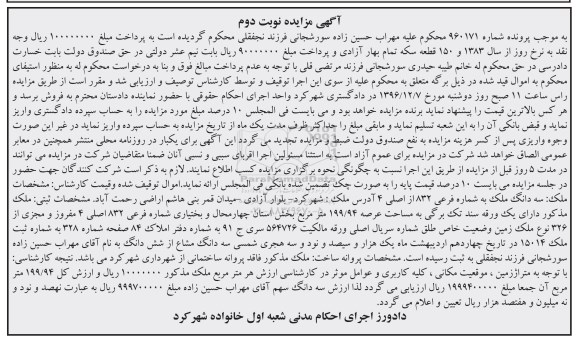 آگهی مزایده نوبت دوم
به موجب پرونده شماره ۹۶۰۱۷۱ محکوم علیه مهراب حسین زاده سورشجانی فرزند نجفقلی محکوم گردیده است به پرداخت مبلغ ۱۰۰۰۰۰۰۰۰ ریال وجه
نقد به نرخ روز از سال ۱۳۸۳ و ۱۵۰ قطعه سکه تمام بهار آزادی و پرداخت مبلغ ۹۰۰۰۰۰۰۰ ریال بابت نیم عشر دولتی در حق صندوق دولت بابت خسارت
دادرسی در حق محکوم له خانم طیبه حیدری سورشجانی فرزند مرتضی قلی با توجه به عدم پرداخت مبالغ فوق و بنا به درخواست محکوم له به منظور استیفای
محکوم به اموال قید شده در ذیل برگه متعلق به محکوم علیه از سوی این اجرا توقیف و توسط کارشناس توصیف و ارزیابی شد و مقرر است از طریق مزایده
راس ساعت ۱۱ صبح روز دوشنبه مورخ ۱۳۹۶/۱۲/۷ در دادگستری شهرکرد واحد اجرای احکام حقوقی با حضور نماینده دادستان محترم به فروش برسد و
هر کس بالاترین قیمت را پیشنهاد نماید برنده مزایده خواهد بود و می بایست فی المجلس ۱۰ درصد مبلغ مورد مزایده را به حساب سپرده دادگستری واریز
نماید و قبض بانکی آن را به این شعبه تسلیم نماید و مابقی مبلغ را حداکثر ظرف مدت یک ماه از تاریخ مزایده به حساب سپرده واریز نماید در غیر این صورت
وجوه واریزی پس از کسر هزینه مزایده به نفع صندوق دولت ضبط و مزایده تجدید می گردد این آگهی برای یکبار در روزنامه محلی منتشر همچنین در معابر
عمومی الصاق خواهد شد شرکت در مزایده برای عموم آزاد است به استثنا مسئولین اجرا اقربای سببی و نسبی آنان ضمنا متقاضیان شرکت در مزایده می توانند
در مدت ۵ روز قبل از مزایده از طریق این اجرا نسبت به چگونگی نحوه برگزاری مزایده کسب اطلاع نمایند. لازم به ذکر است شرکت کنندگان جهت حضور
در جلسه مزایده می بایست ۱۰ درصد قیمت پایه را به صورت چک تضمین شده بانکی فی المجلس ارائه نماید.اموال توقیف شده وقیمت کارشناس: مشخصات
ملک: سه دانگ ملک به شماره فرعی ۸۳۲از اصلی ۴ آدرس ملک: شهرکرد- بلوار آزادی -میدان قمر بنی هاشم اراضی رحمت آباد. مشخصات ثبتی: ملک
مذکور دارای یک ورقه سند تک برگی به مساحت عرصه ۱۹۹/۹۴ متر مربع بخش استان چهارمحال و بختیاری شماره فرعی ۸۳۲ اصلی ۴ مفروز و مجزی از
۳۲۶ نوع ملک زمین وضعیت خاص طلق شماره سریال اصلی ورقه مالکیت ۵۶۴۷۲۶ سری ج ۹۱ به شماره دفتر املاک ۸۴ صفحه شماره ۳۲۸ به شماره ثبت
ملک ۱۵۰۱۴ در تاریخ چهاردهم اردیبهشت ماه یک هزار و سیصد و نود و سه هجری شمسی سه دانگ مشاع از شش دانگ به نام آقای مهراب حسین زاده
سورشجانی فرزند نجفقلی به ثبت رسیده است. مشخصات پروانه ساخت: ملک مذکور فاقد پروانه ساختمانی از شهرداری شهرکرد می باشد. نتیجه کارشناسی:
با توجه به متراژزمین ، موقعیت مکانی ، کلیه کاربری و عوامل موثر در کارشناسی ارزش هر متر مربع ملک مذکور ۱۰۰۰۰۰۰۰ ریال و ارزش کل ۱۹۹/۹۴ متر
مربع آن جمعا مبلغ ۱۹۹۹۴۰۰۰۰۰ ریال ارزیابی می گردد لذا ارزش سه دانگ سهم آقای مهراب حسین زاده مبلغ ۹۹۹۷۰۰۰۰۰ ریال به عبارت نهصد و نود و
نه میلیون و هفتصد هزار ریال تعیین و اعلام می گردد.
دادورز اجرای احکام مدنی شعبه اول خانواده شهرکرد